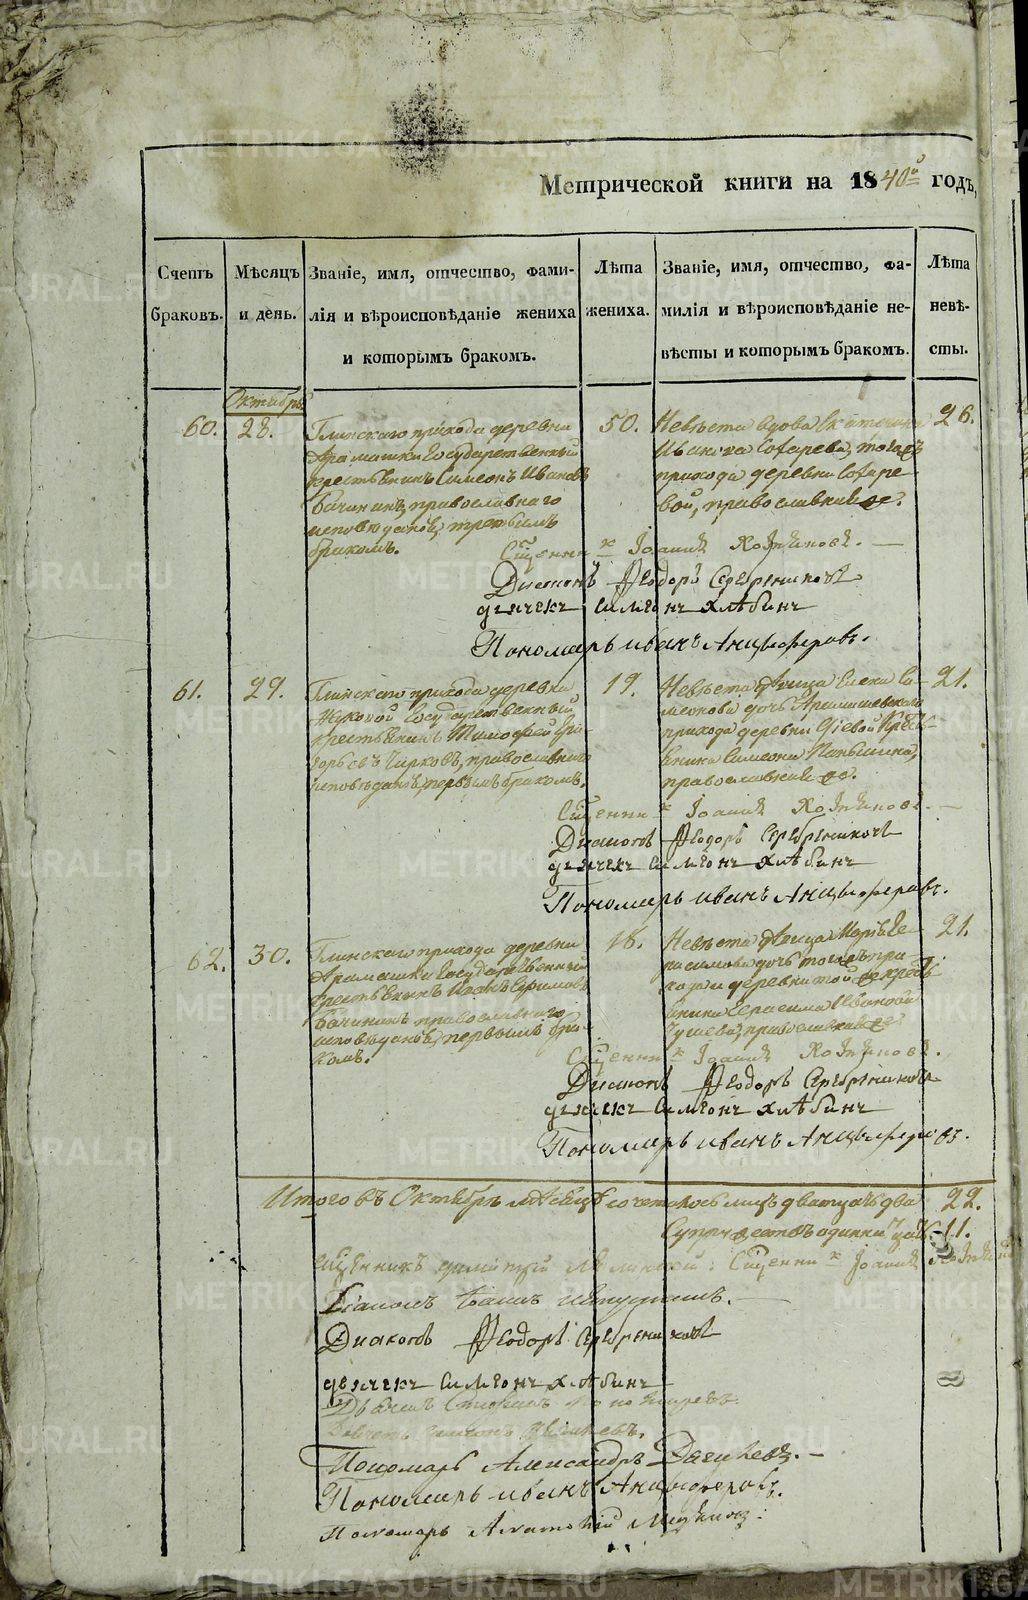 Метрической книги на 1840й годъ,
Счетъ браковъ.
Мѣсяцъ и день.
Званіе, имя, отчество, фами-
лія и вѣроисповѣданіе жениха
и которымъ бракомъ.
Лѣта жениха.
Званіе, имя, отчество, фа-
милія и вѣроисповѣданіе не-
вѣсты и которымъ бракомъ.
Лѣта невѣ-
сты.
Октябрь
60.
28.
Глинскаго прихода деревни
Арамашки Государственный
крестьянинъ Симеонъ Ивановъ
Бачининъ, православнаго
исповѣданія, третьимъ
бракомъ.
50.
Невѣста вдова Екатерина
Иванова
прихода деревни
вой, православная
26.
Священникъ Іоаннъ
Диаконъ Ѳеодоръ Серебрениковъ
дьячекъ Симеонъ Хлѣбинъ
Пономарь Иванъ Анцыферовъ.
61.
29.
Глинскаго прихода деревни
Жуковой Государственный
крестьянинъ Тимофей Гри-
горьевъ Чирковъ, православнаго
исповѣданія, первымъ бракомъ.
19.
Невѣста дѣвица Елена Си-
меонова дочь
прихода деревни
Симеона Паньшина,
православная
21.
Священникъ Іоаннъ
Диаконъ Ѳеодоръ Серебрениковъ
дьячекъ Симеонъ Хлѣбинъ
Пономарь Иванъ Анцыферовъ.
62.
30.
Глинскаго прихода деревни
Арамашки Государственный
крестьянинъ Иванъ Ефимовъ
Бачининъ православнаго
исповѣданія, первымъ бра-
комъ.
18.
Невѣста дѣвица Марія Ге-
расимова дочь тогожъ при-
хода и деревни той же кресть-
янина Герасима Иванова
православная
21.
Священникъ Іоаннъ
Диаконъ Ѳеодоръ Серебрениковъ
дьячекъ Симеонъ Хлѣбинъ
Пономарь Иванъ Анцыферовъ.
Итого въ Октябрѣ мѣсяцѣ сочеталось лицъ двадцать два 22.
Супружествъ одиннадцать 11.
Священникъ Димитрій Священникъ Іоаннъ
Діаконъ
Диаконъ Ѳеодоръ Серебрениковъ
дьячекъ Симеонъ Хлѣбинъ
Дьячекъ Стефанъ
Пономарь Александръ Дягилевъ.
Пономарь Иванъ Анцыферовъ.
Пономарь
METRIKI.GASO-URAL.RU